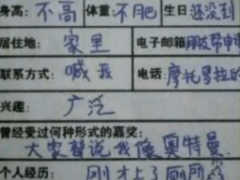 身高: 不高 体重: 不肥 生日 还没到
居住地: 家里 电子邮箱 朋友帮申请
联系方式: 喊我 电话: 摩托罗拉
兴趣: 广泛
曾经受过何种形式的嘉奖:
大家都说我像奥特曼
个人经历: 刚才上了厕所